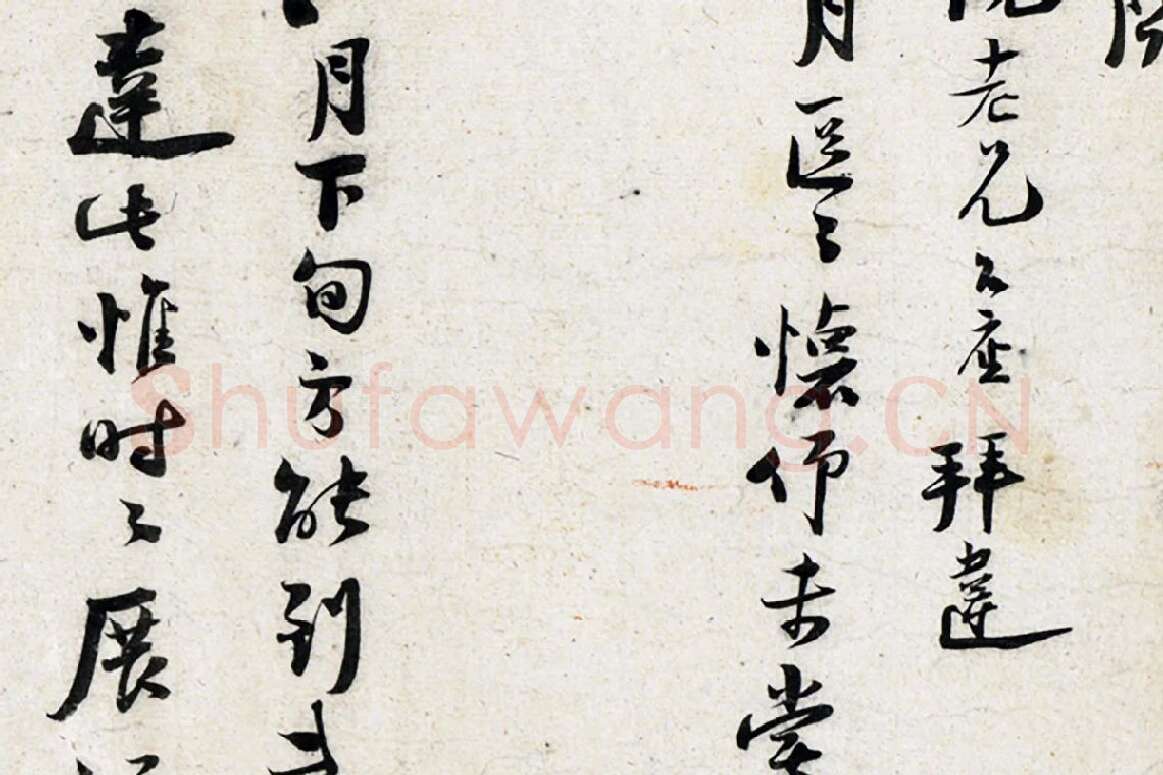 院老兄公座 拜違
月區〻懷仰未嘗
月下旬方能到
達此惟時〻展
Shufawang.CN